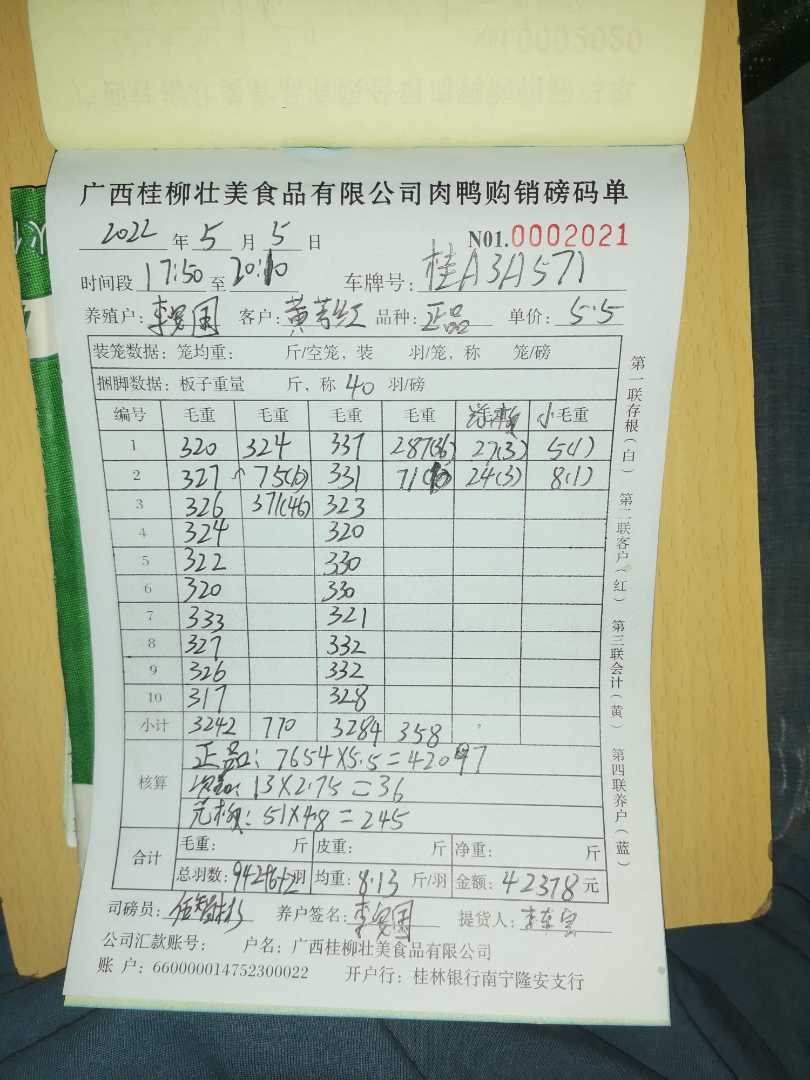 广西桂柳壮美食品有限公司肉鸭购销磅码单
2022 年 5 月 5 日 N01.0002021
时间段 17:50 至 20:10 车牌号: 桂A3A571
养殖户: 李 国 客户: 黄 红 品种: 正品 单价: 5.5
装笼数据: 笼均重: 斤/空笼, 装 羽/笼, 称 笼/磅
捆脚数据: 板子重量 斤, 称 40 羽/磅
编号 毛重 毛重 毛重 毛重 小毛重
1 320 324 337 287(36) 27(3) 5(1)
2 327 75(6) 331 71 24(3) 8(1)
3 326 371(46) 323
4 324 320
5 322 330
6 320 330
7 333 321
8 327 332
9 326 332
10 317 328
小计 3242 770 3284 358
核算
正品: 7654X5.5=42097
13X2.75=36
51X4.8=245
合计
毛重: 斤 皮重: 斤 净重: 斤
总羽数: 942+6+2羽 均重: 8.13 斤/羽 金额: 42378 元
司磅员: 养户签名: 李 国 提货人: 李
公司汇款账号: 户名: 广西桂柳壮美食品有限公司
账 户: 660000014752300022 开户行: 桂林银行南宁隆安支行
第一联存根(白) 第二联客户(红) 第三联会计(黄) 第四联养户(蓝)